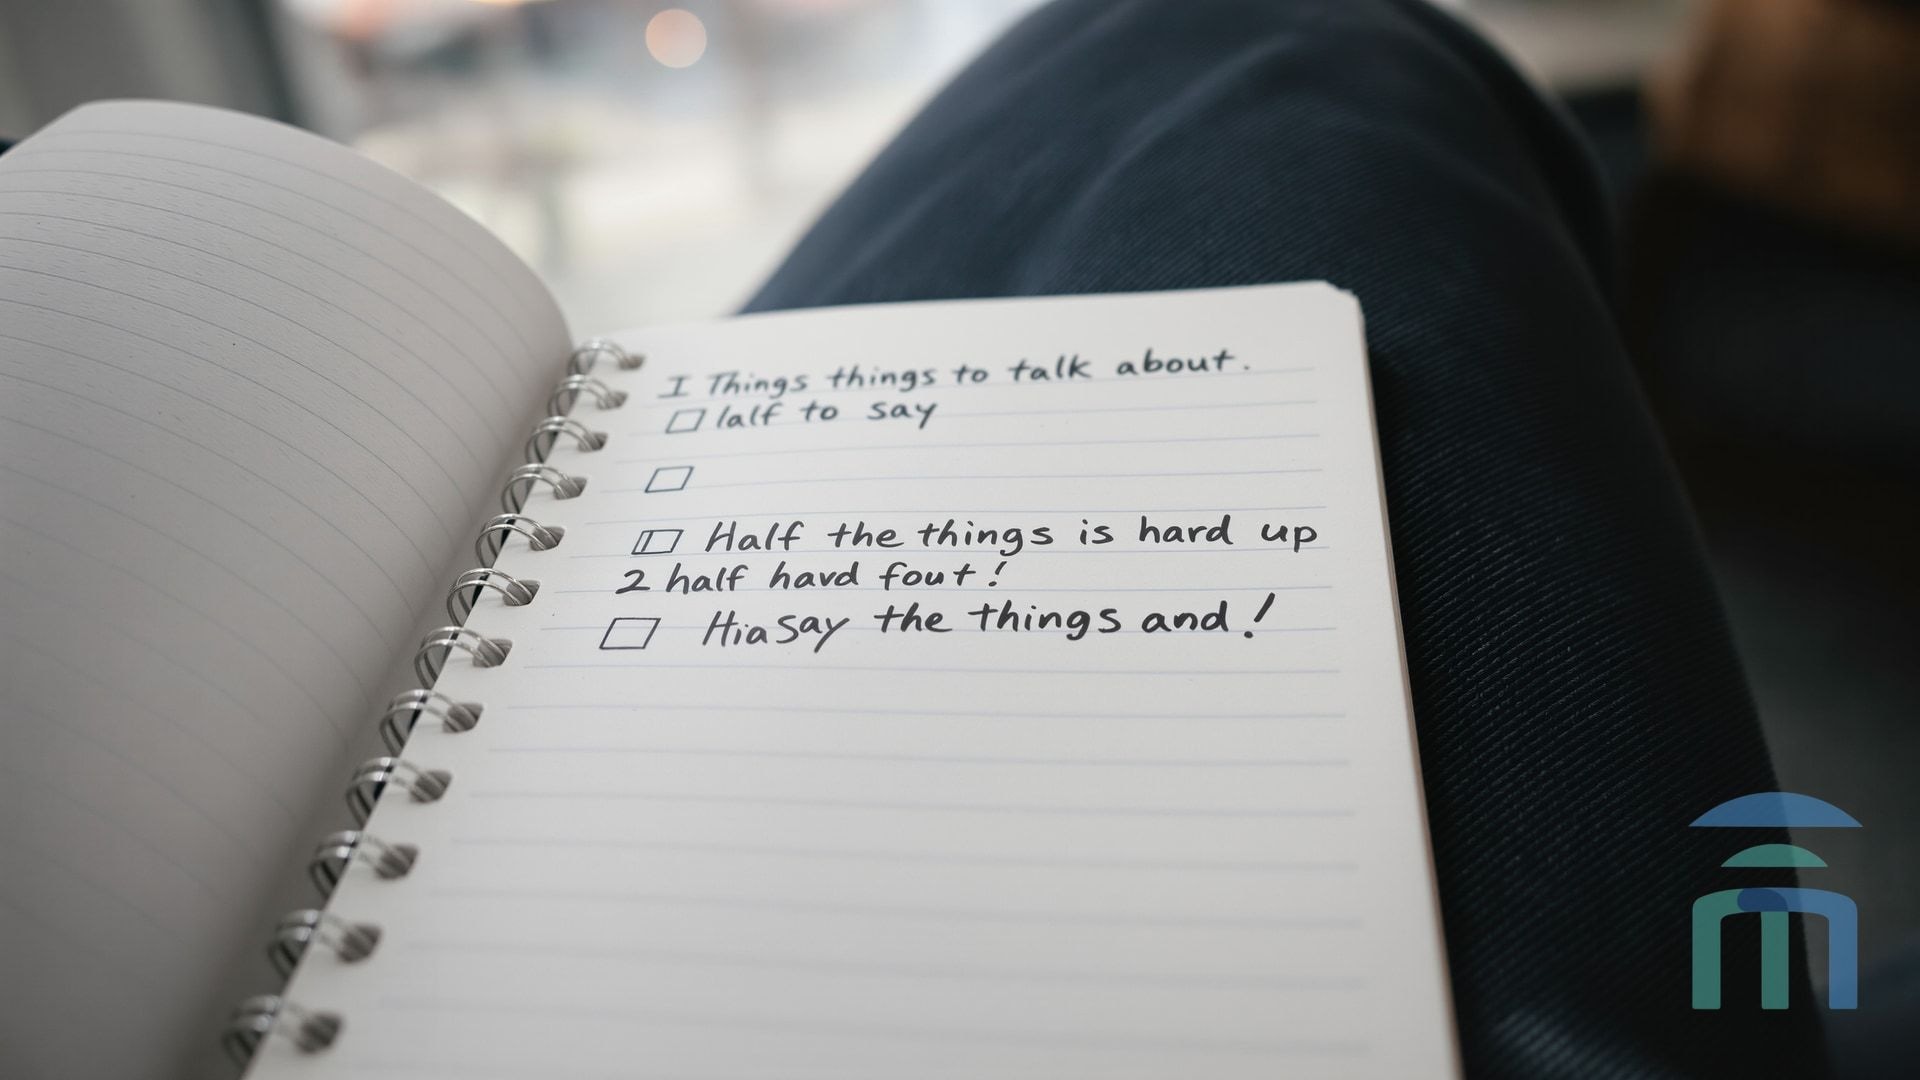 I Things things to talk about.
☐ lalf to say
☐
☐ Half the things is hard up
2 half havd fout!
☐ Hia say the things and!